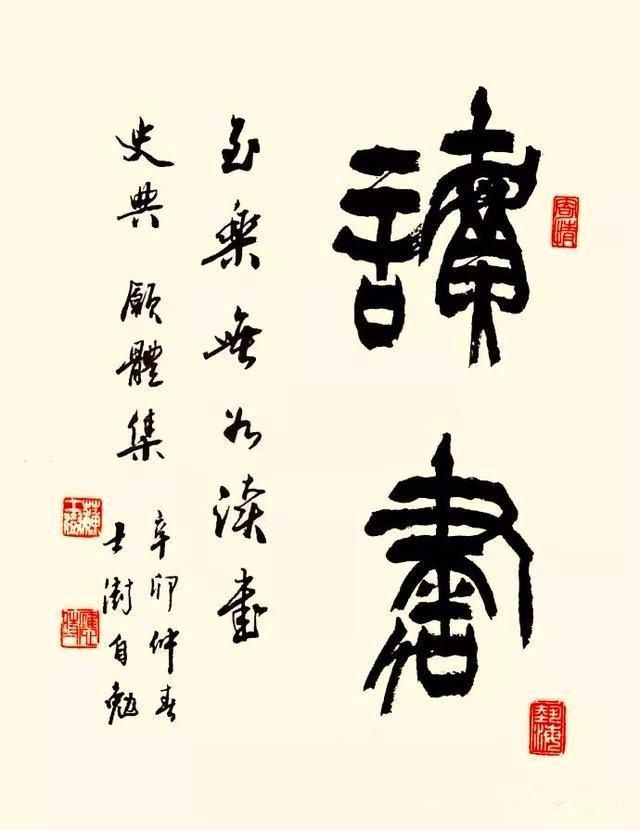 讀書
至樂無如讀書
史典 願體集
辛卯仲春
士澍自勉